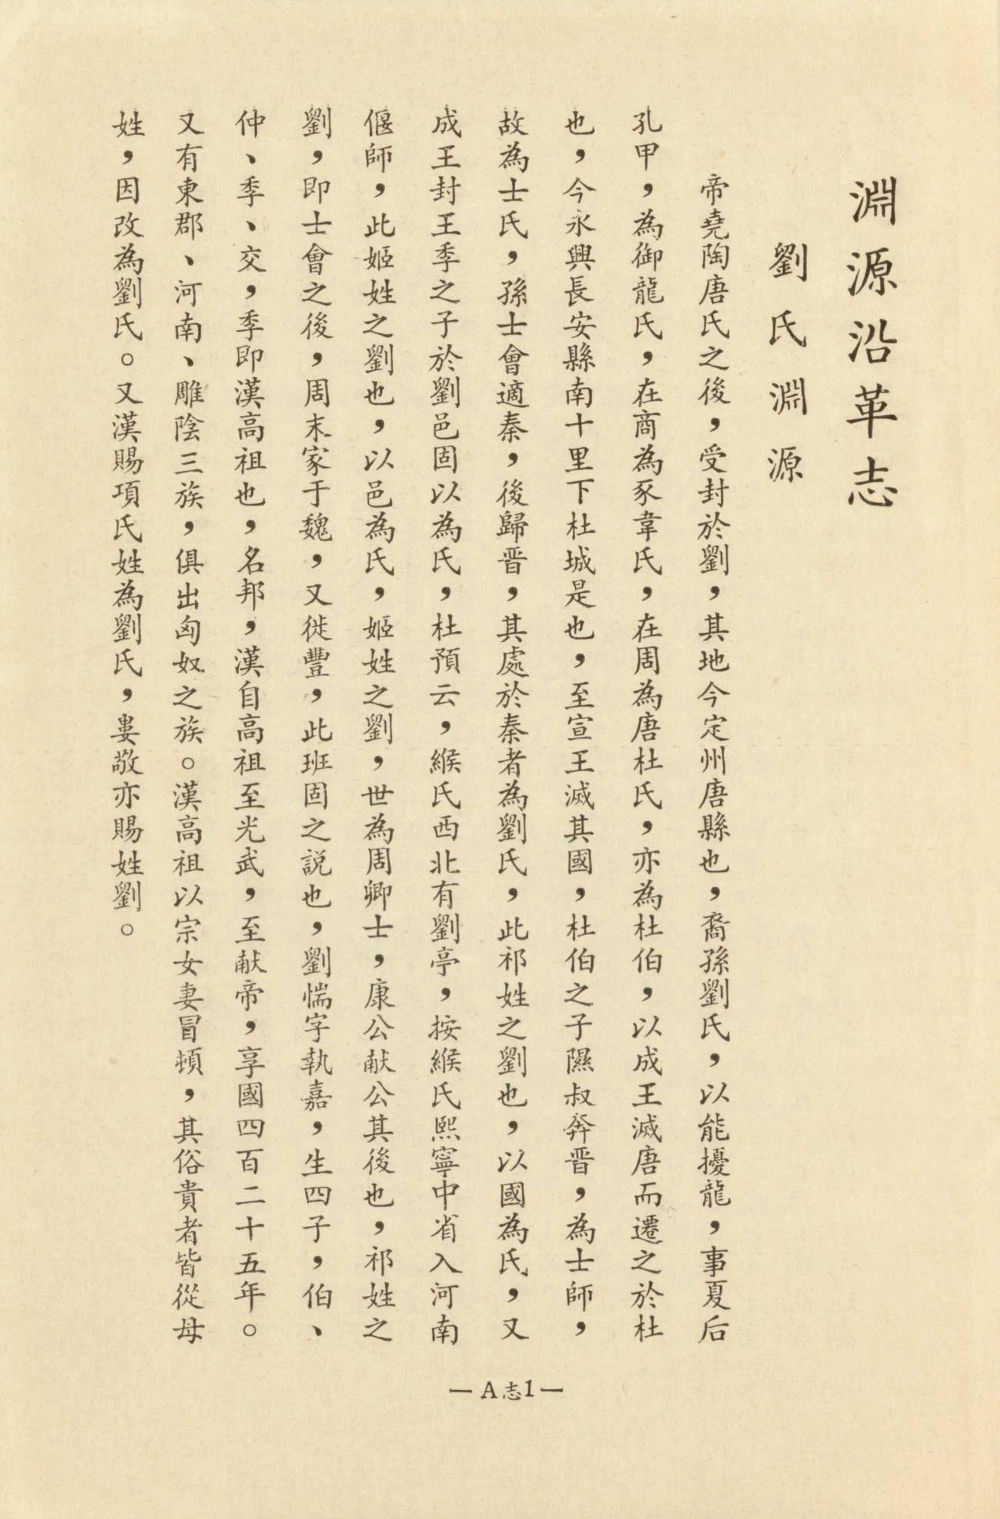 淵源沿革志
劉氏淵源
帝堯陶唐氏之後，受封於劉，其地今定州唐縣也，裔孫劉氏，以能擾龍，事夏后
孔甲，為御龍氏，在商為豕韋氏，在周為唐杜氏，亦為杜伯，以成王滅唐而遷之於杜
也，今永興長安縣南十里下杜城是也，至宣王滅其國，杜伯之子隰叔奔晋，為士師，
故為士氏，孫士會適秦，後歸晋，其處於秦者為劉氏，此祁姓之劉也，以國為氏，又
成王封王季之子於劉邑固以為氏，杜預云，緱氏西北有劉亭，按緱氏熙寧中省入河南
偃師，此姬姓之劉也，以邑為氏，姬姓之劉，世為周卿士，康公献公其後也，祁姓之
劉，即士會之後，周末家于魏，又徙豐，此班固之説也，劉惴字執嘉，生四子，伯、
仲、季、交，季即漢高祖也，名邦，漢自高祖至光武，至献帝，享國四百二十五年。
又有東郡、河南、雕陰三族，俱出匈奴之族。漢高祖以宗女妻冒頓，其俗貴者皆從母
姓，因改為劉氏。又漢賜項氏姓為劉氏，婁敬亦賜姓劉。
—A志1—